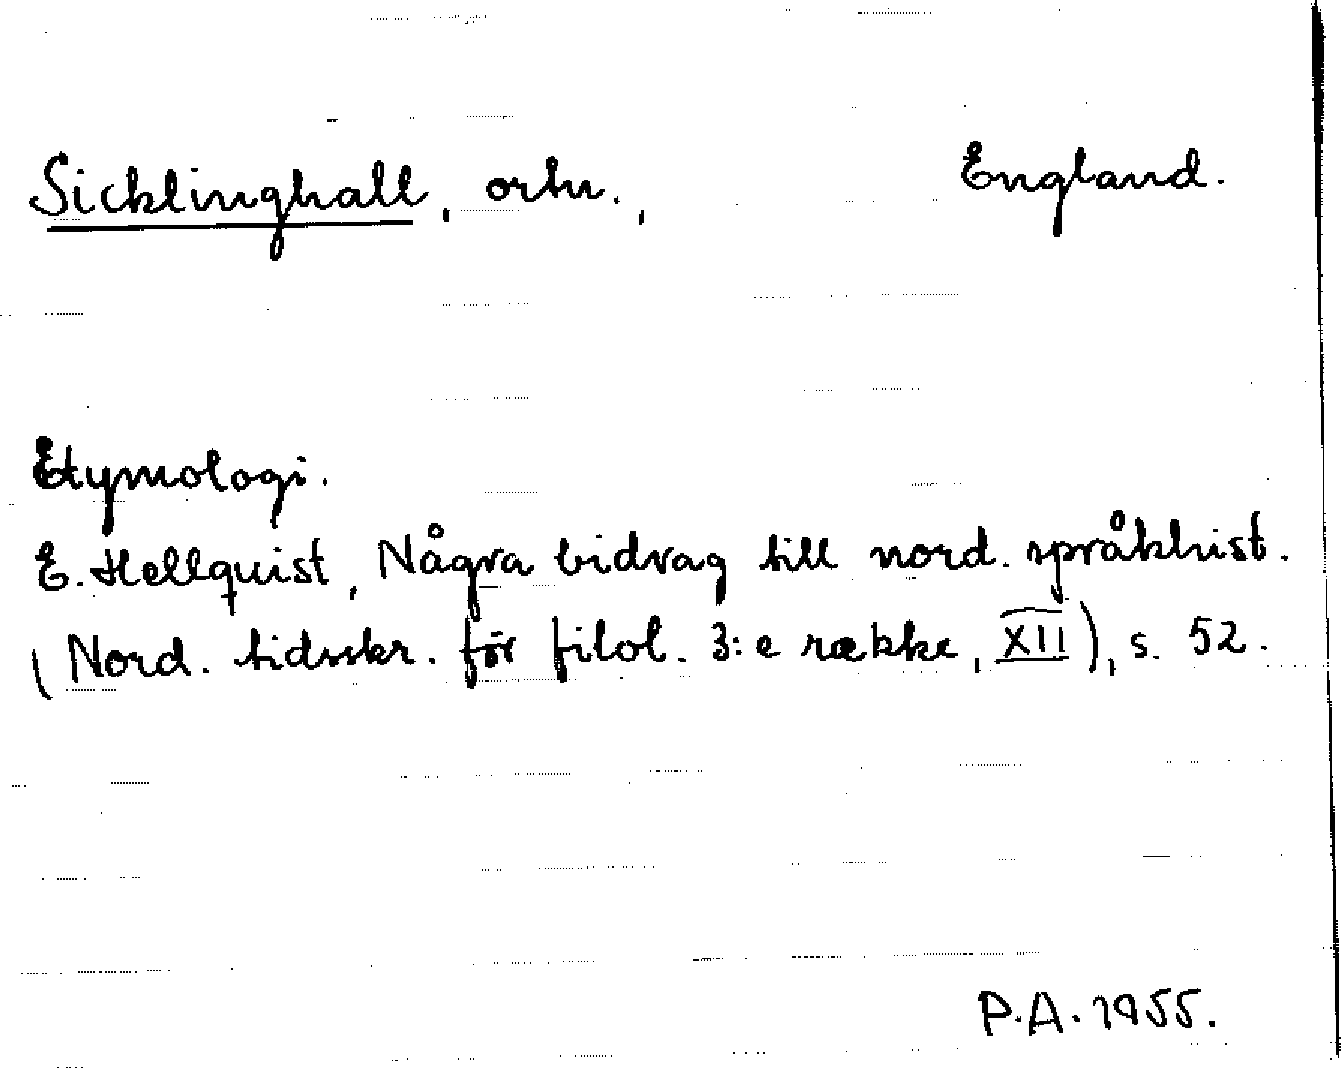 Sicklinghall, ortn., England.
Etymologi.
E. Hellquist, Några bidrag till nord. språkhist.
(Nord. tidsskr. för filol. 3:e række, XII), s. 52.
P.A. 1955.